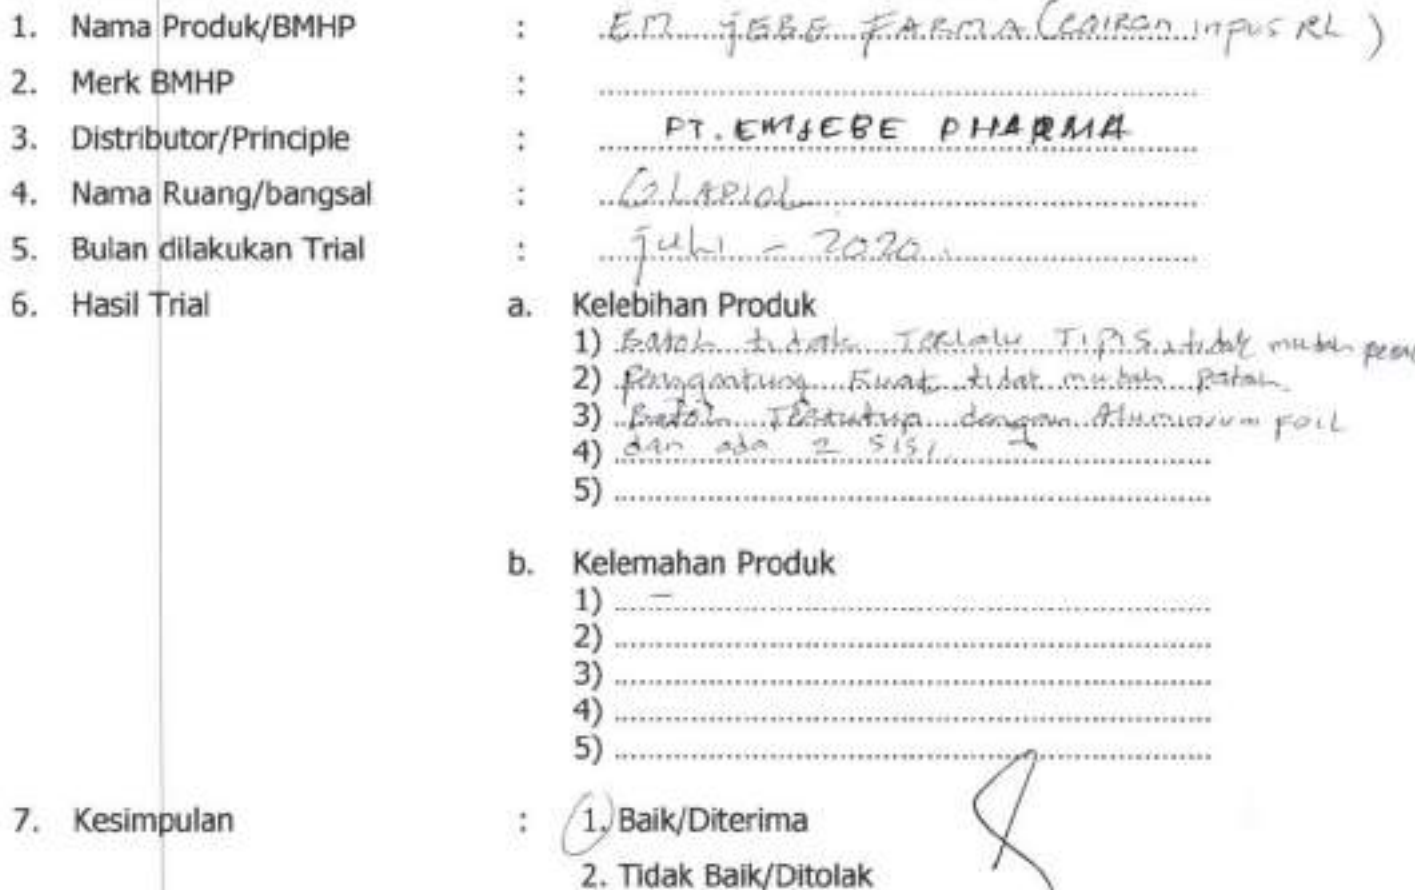 1. Nama Produk/BMHP : EM JEBE FARMA (Cairan inpus RL)
2. Merk BMHP :
3. Distributor/Principle : PT. EMJEBE PHARMA
4. Nama Ruang/bangsal : GLADIOL
5. Bulan dilakukan Trial : juli - 2020.
6. Hasil Trial a. Kelebihan Produk
1) Botol tidak Terlalu TIPIS, tidak mudah
2) penggantung kuat tidak mudah patah
3) Botol Tertutup dengan Aluminium FOIL
4) dan ada 2 SISI
5)
b. Kelemahan Produk
1) -
2)
3)
4)
5)
7. Kesimpulan : 1. Baik/Diterima
2. Tidak Baik/Ditolak